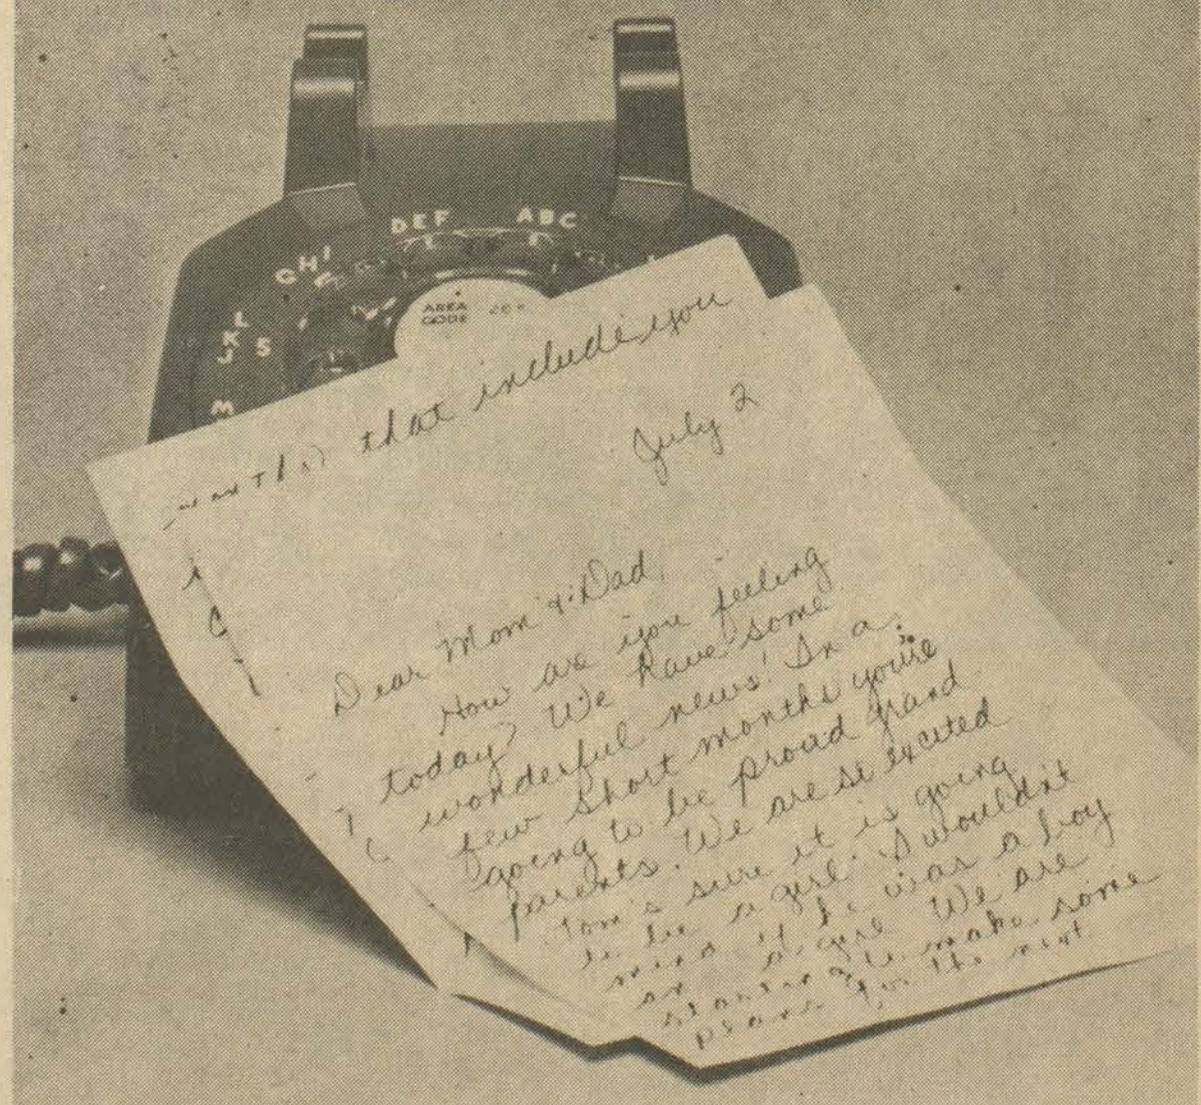 DEF
ABC
GHI
L
K
J 5
M
AREA
CODE
that include you
July 2
Dear Mom & Dad,
How are you feeling
today? We have some
wonderful news! In a
few short months you're
going to be proud grand
parents. We are so excited
Tom's sure it is going
to be a girl. I wouldn't
mind if he was a boy
or a girl We are
starting to make some
plans for the next